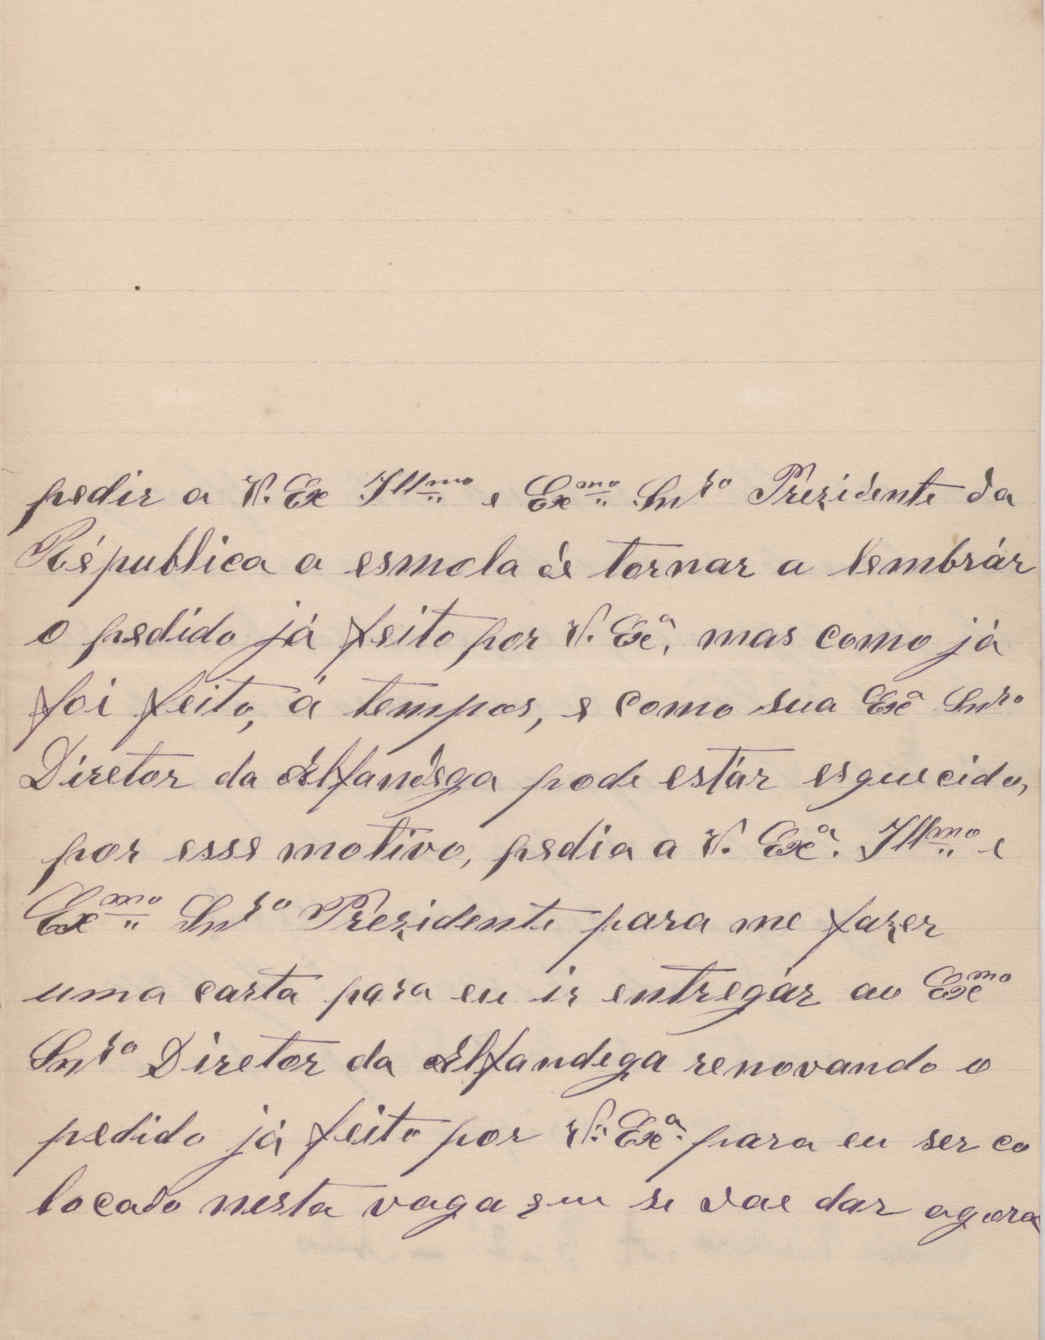 pedir a V. Ex Illmo e Exmo Snrº Prezidente da
Républica a esmola de tornar a lembrár
o pedido já feito por V. Exª, mas como já
foi feito, á tempos, e como sua Exª Snrº
Diretor da Alfandega pode estár esquecido,
por esse motivo, pedia a V. Exª. Illmo e
Exmo Snrº Prezidente para me fazer
uma carta para eu ir entregár ao Exmo
Snrº Diretor da Alfandega renovando o
pedido já feito por V. Exª. para eu ser co
locado nesta vaga que se vae dar agora